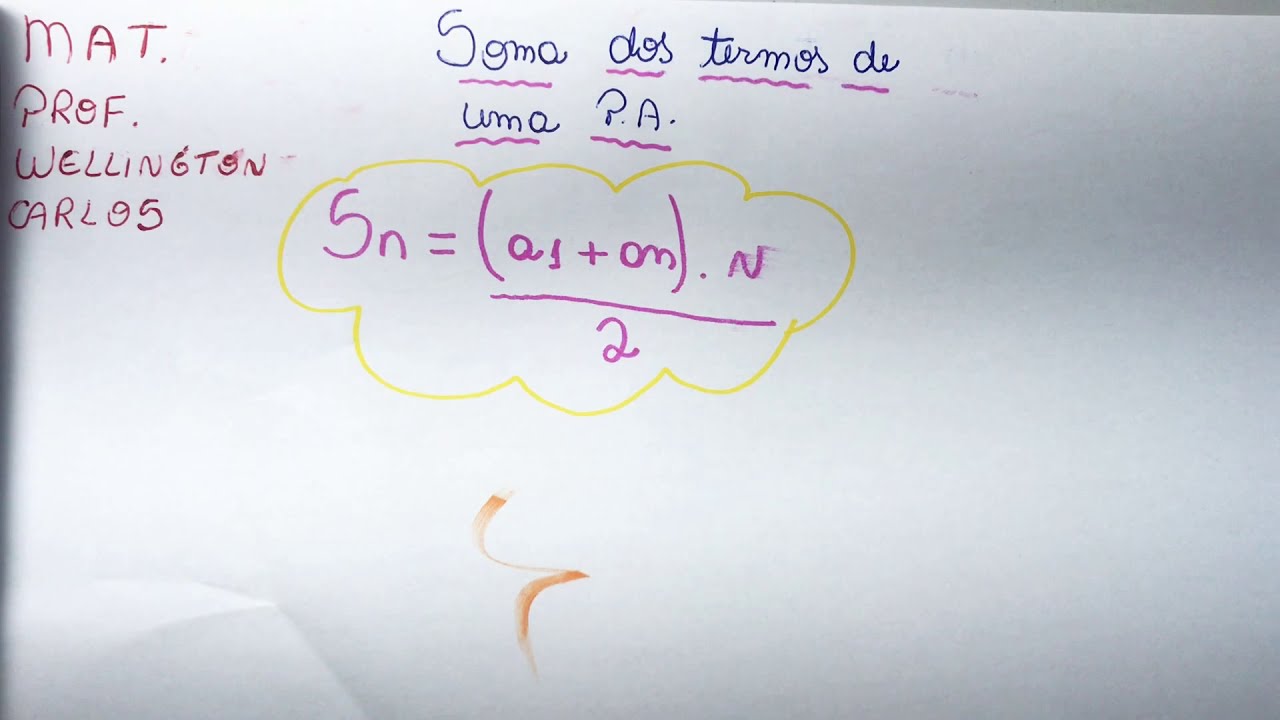 MAT.
PROF.
WELLINGTON
CARLOS
Soma dos termos de
uma P.A.
Sn = (a1 + an) . N
2